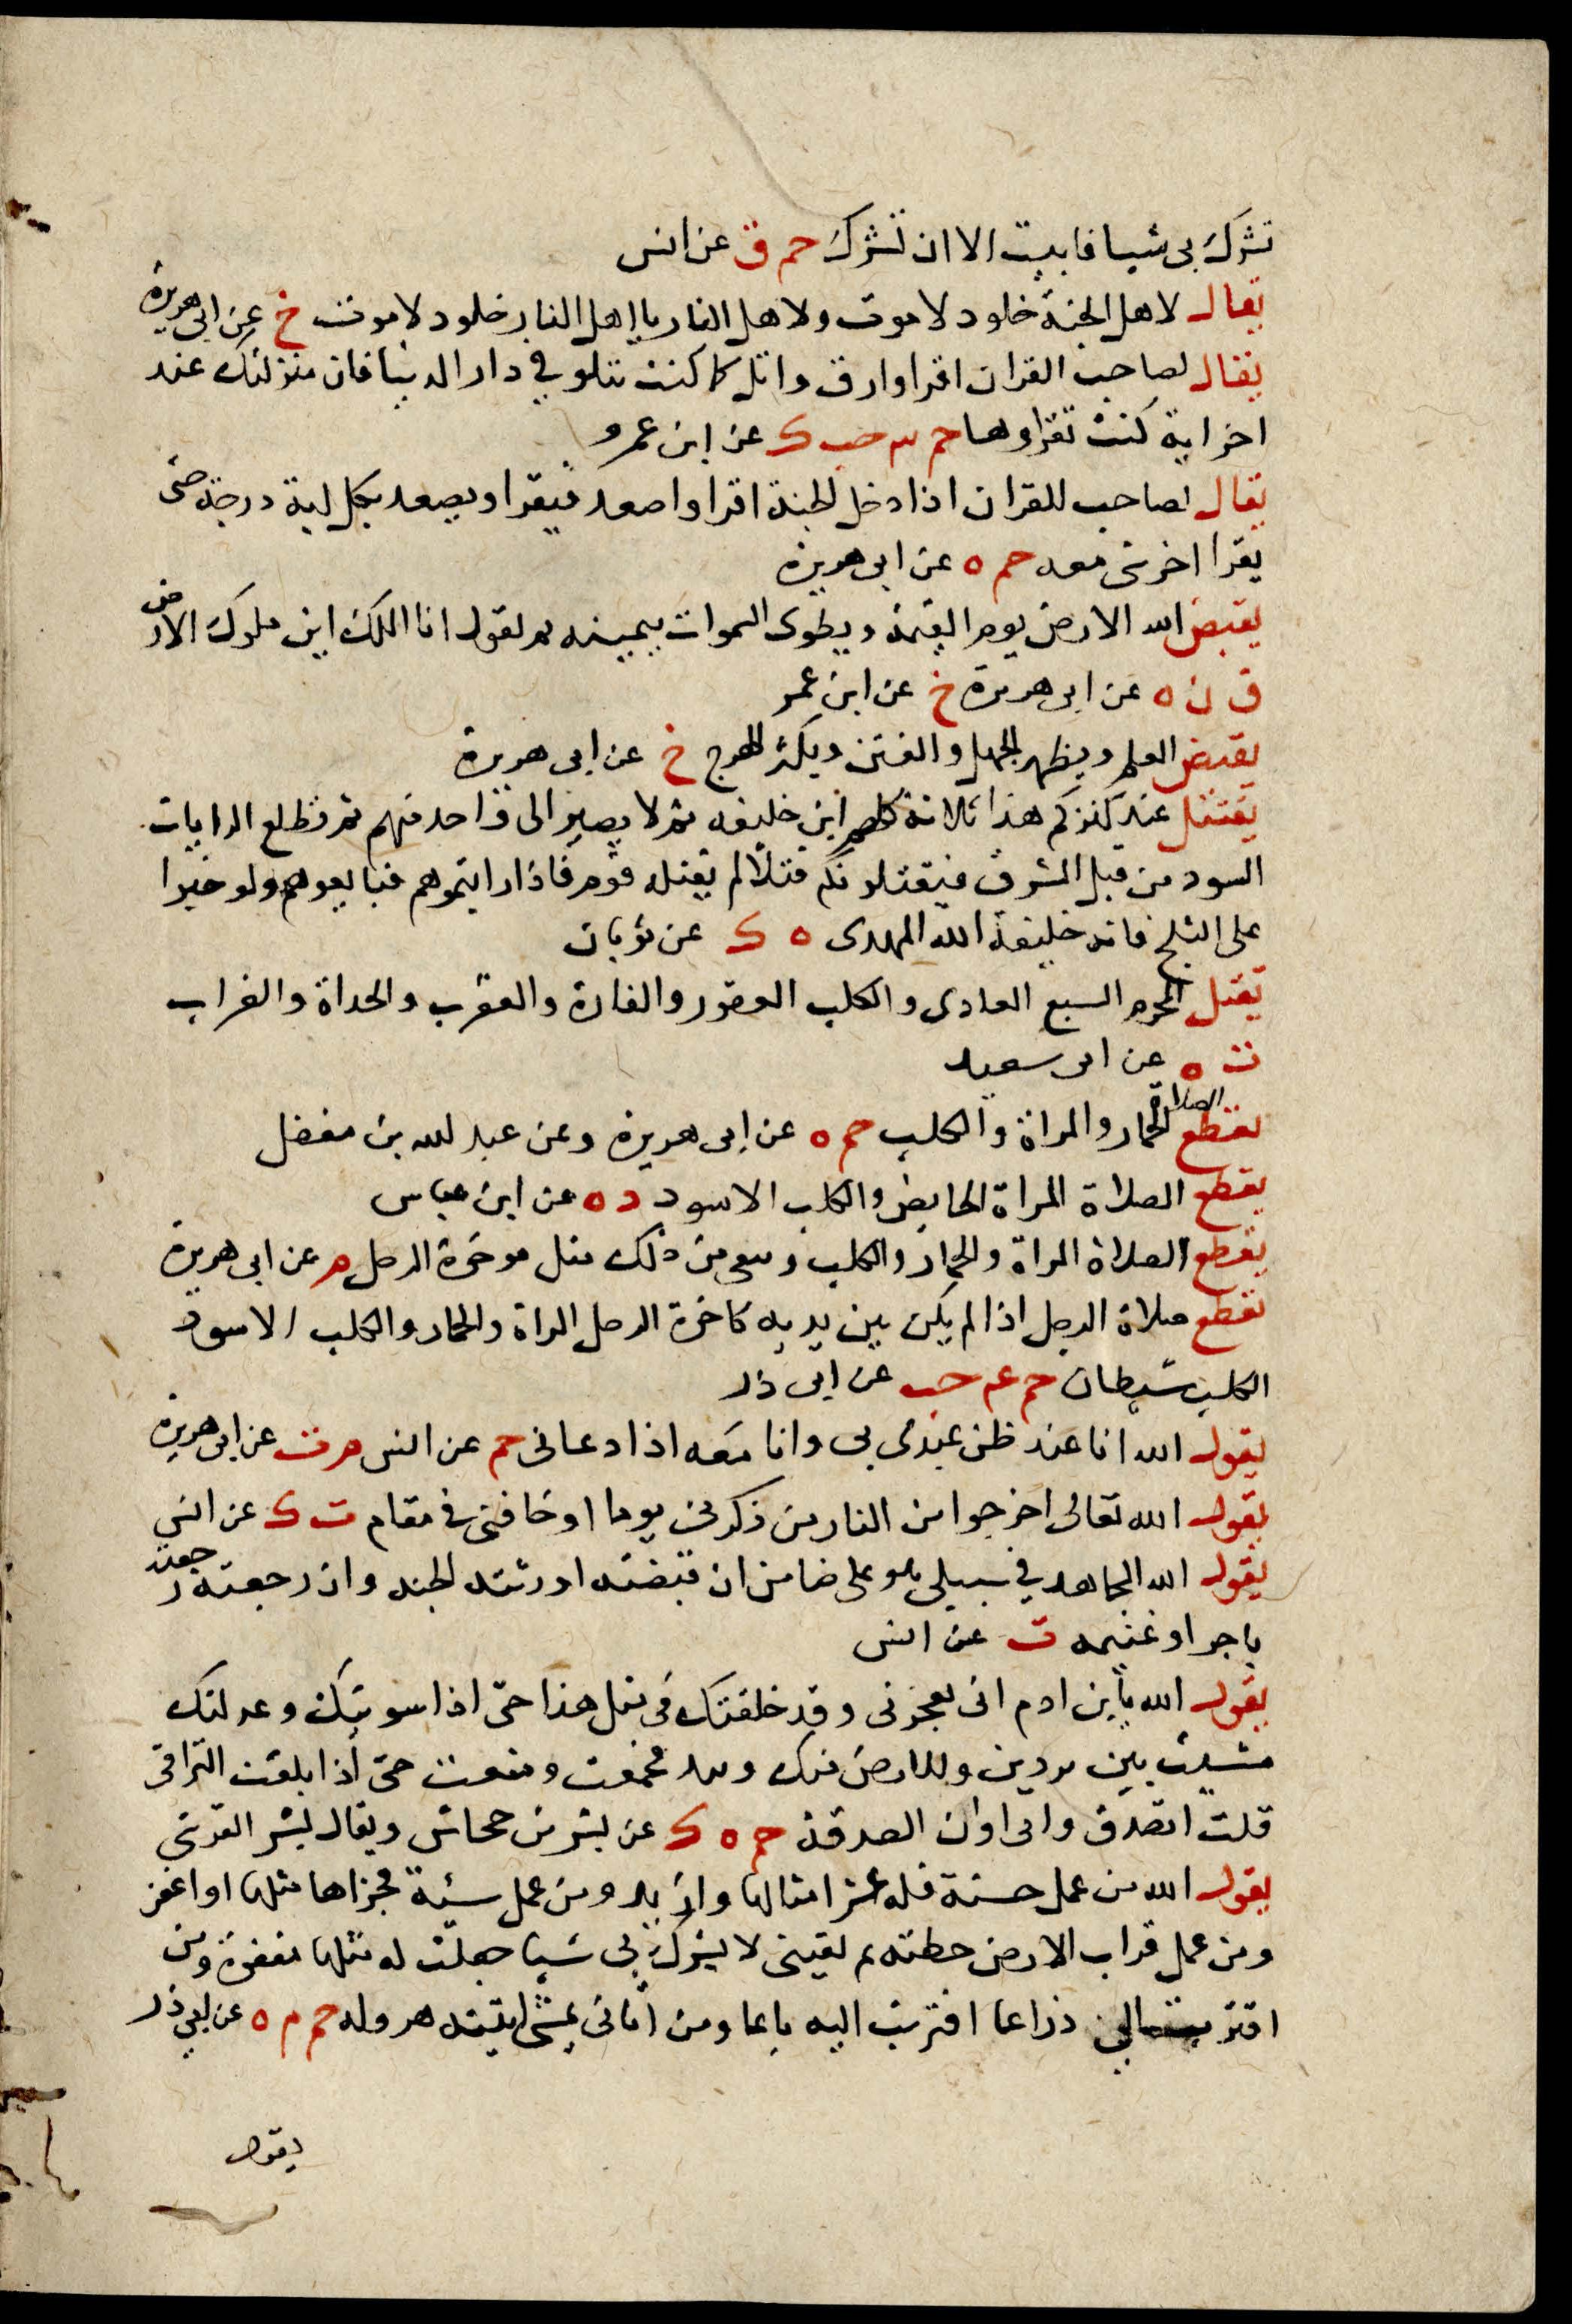 تشرك بى شيا فابيت الا ان تشرك حم ق عن انس
يقال لاهل الجنة خلود لا موت ولاهل النار يا اهل النار خلود لا موت خ عن ابى هريرة
يقال لصاحب القران اقرا وارق واتل كما كنت تتلو في دار الدنيا فان منزلتك عند
اخر اية كنت تقراوها حم حب ك عن ابن عمرو
يقال لصاحب القران اذا دخل الجنة اقرا واصعد فيقرا ويصعد بكل اية درجة حتى
يقرا اخر شى معه حم ه عن ابى هريرة
يقبض الله الارض يوم القيمة ويطوى السموات بيمينه ثم يقول انا الملك اين ملوك الارض
ق ن ه عن ابى هريرة خ عن ابن عمر
يقبض العلم ويظهر الجهل والفتن ويكثر الهرج خ عن ابى هريرة
يقتتل عند كنزكم هذا ثلاثة كلهم ابن خليفه ثم لا يصير الى واحد منهم ثم تطلع الرايات
السود من قبل المشرق فيقتلونكم قتلا لم يقتله قوم فاذا رايتموهم فبايعوهم ولو حبوا
على الثلج فانه خليفة الله المهدى ه ك عن ثوبان
يقتل المحرم السبع العادى والكلب العقور والفارة والعقرب والحداة والغراب
ت ه عن ابى سعيد
يقطع الصلاة الحمار والمراة والكلب حم ه عن ابى هريرة وعن عبد الله بن مغفل
يقطع الصلاة المراة الحايض والكلب الاسود د ه عن ابن عباس
يقطع الصلاة المراة والحمار والكلب وبقى من ذلك مثل موخرة الرحل م عن ابى هريرة
يقطع صلاة الرجل اذا لم يكن بين يديه كاخرة الرحل المراة والحمار والكلب الاسود
الكلب شيطان حم عم حب عن ابى ذر
يقول الله انا عند ظن عبدى بى وانا معه اذا دعانى حم عن انس م ت عن ابى هريرة
يقول الله تعالى اخرجوا من النار من ذكرنى يوما او خافنى فى مقام ت ك عن انس
يقول الله المجاهد في سبيلى هو على ضامن ان قبضته اورثته الجنه وان رجعته رجعته
باجر او غنيمه ت عن انس
يقول الله يا بن ادم انى تعجزنى وقد خلقتك فى مثل هذا حتى اذا سويتك وعدلتك
مشيت بين بردين وللارض منك وئيد فجمعت ومنعت حتى اذا بلغت التراقى
قلت اتصدق وانى اوان الصدقة حم ه ك عن بشر بن جحاش ويقال بشر القرشى
يقول الله من عمل حسنة فله عشر امثالها وازيد ومن عمل سيئة فجزاها مثلها او اغفر
ومن عمل قراب الارض خطئه ثم لقينى لا يشرك بى شيا جعلت له مثلها مغفرة ومن
اقترب الى ذراعا اقتربت اليه باعا ومن اتانى يمشى اتيته هروله حم م ه عن ابي ذر
يقول